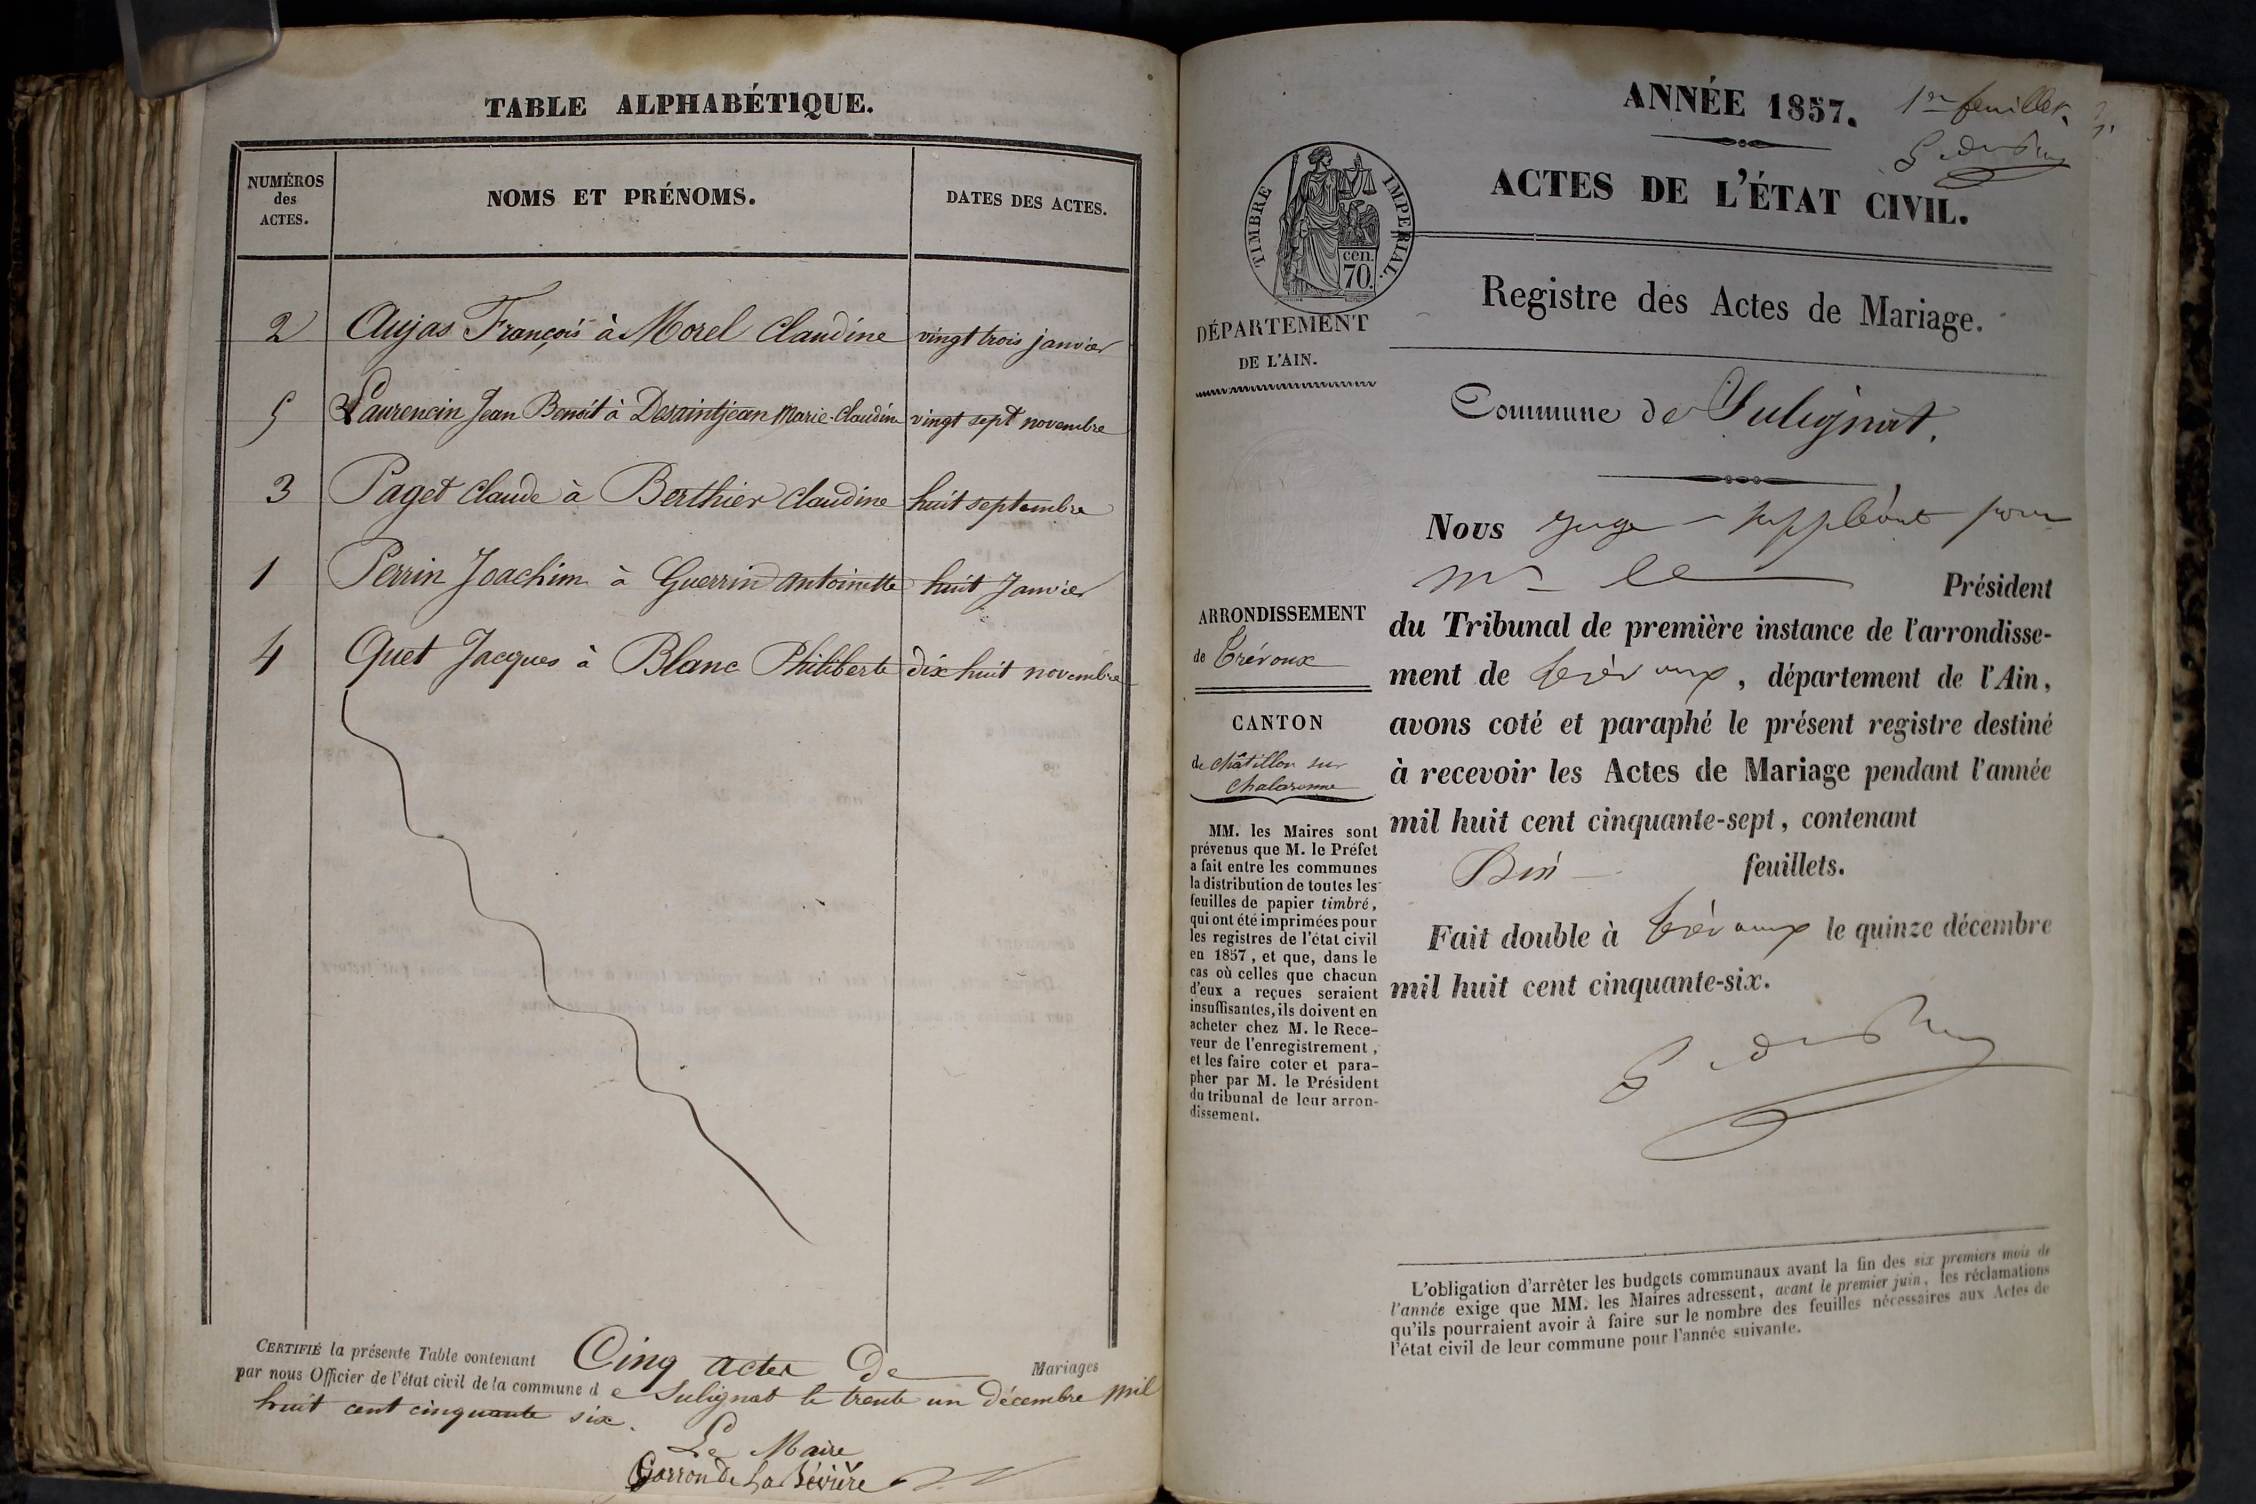 TABLE ALPHABÉTIQUE.
NUMÉROS des ACTES. NOMS ET PRÉNOMS. DATES DES ACTES.
2 Aujas François à Morel Claudine vingt trois janvier
5 Laurencin Jean Benoît à Desaintjean Marie-Claudine vingt sept novembre
3 Paget Claude à Berthier Claudine huit septembre
1 Perrin Joachim à Guerrin Antoinette huit Janvier
4 Quet Jacques à Blanc Philiberte dix huit novembre
CERTIFIÉ la présente Table contenant Cinq actes De Mariages
par nous Officier de l'état civil de la commune de Sulignat le trente un décembre mil
huit cent cinquante six.
Le Maire
Garron De La Bévière
ANNÉE 1857.
1er feuillet.
ACTES DE L'ÉTAT CIVIL.
TIMBRE IMPERIAL.
cen.
70.
Registre des Actes de Mariage.
DÉPARTEMENT
DE L'AIN.
Commune de Sulignat.
Nous juge suppléant pour
Mr le Président
du Tribunal de première instance de l'arrondisse-
ment de Trévoux, département de l'Ain,
avons coté et paraphé le présent registre destiné
à recevoir les Actes de Mariage pendant l'année
mil huit cent cinquante-sept, contenant
feuillets.
Fait double à Trévoux le quinze décembre
mil huit cent cinquante-six.
ARRONDISSEMENT
de Trévoux
CANTON
de Châtillon sur
Chalaronne
MM. les Maires sont
prévenus que M. le Préfet
a fait entre les communes
la distribution de toutes les
feuilles de papier timbré,
qui ont été imprimées pour
les registres de l'état civil
en 1857, et que, dans le
cas où celles que chacun
d'eux a reçues seraient
insuffisantes, ils doivent en
acheter chez M. le Rece-
veur de l'enregistrement,
et les faire coter et para-
pher par M. le Président
du tribunal de leur arron-
dissement.
L'obligation d'arrêter les budgets communaux avant la fin des six premiers mois de
l'année exige que MM. les Maires adressent, avant le premier juin, les réclamations
qu'ils pourraient avoir à faire sur le nombre des feuilles nécessaires aux Actes de
l'état civil de leur commune pour l'année suivante.